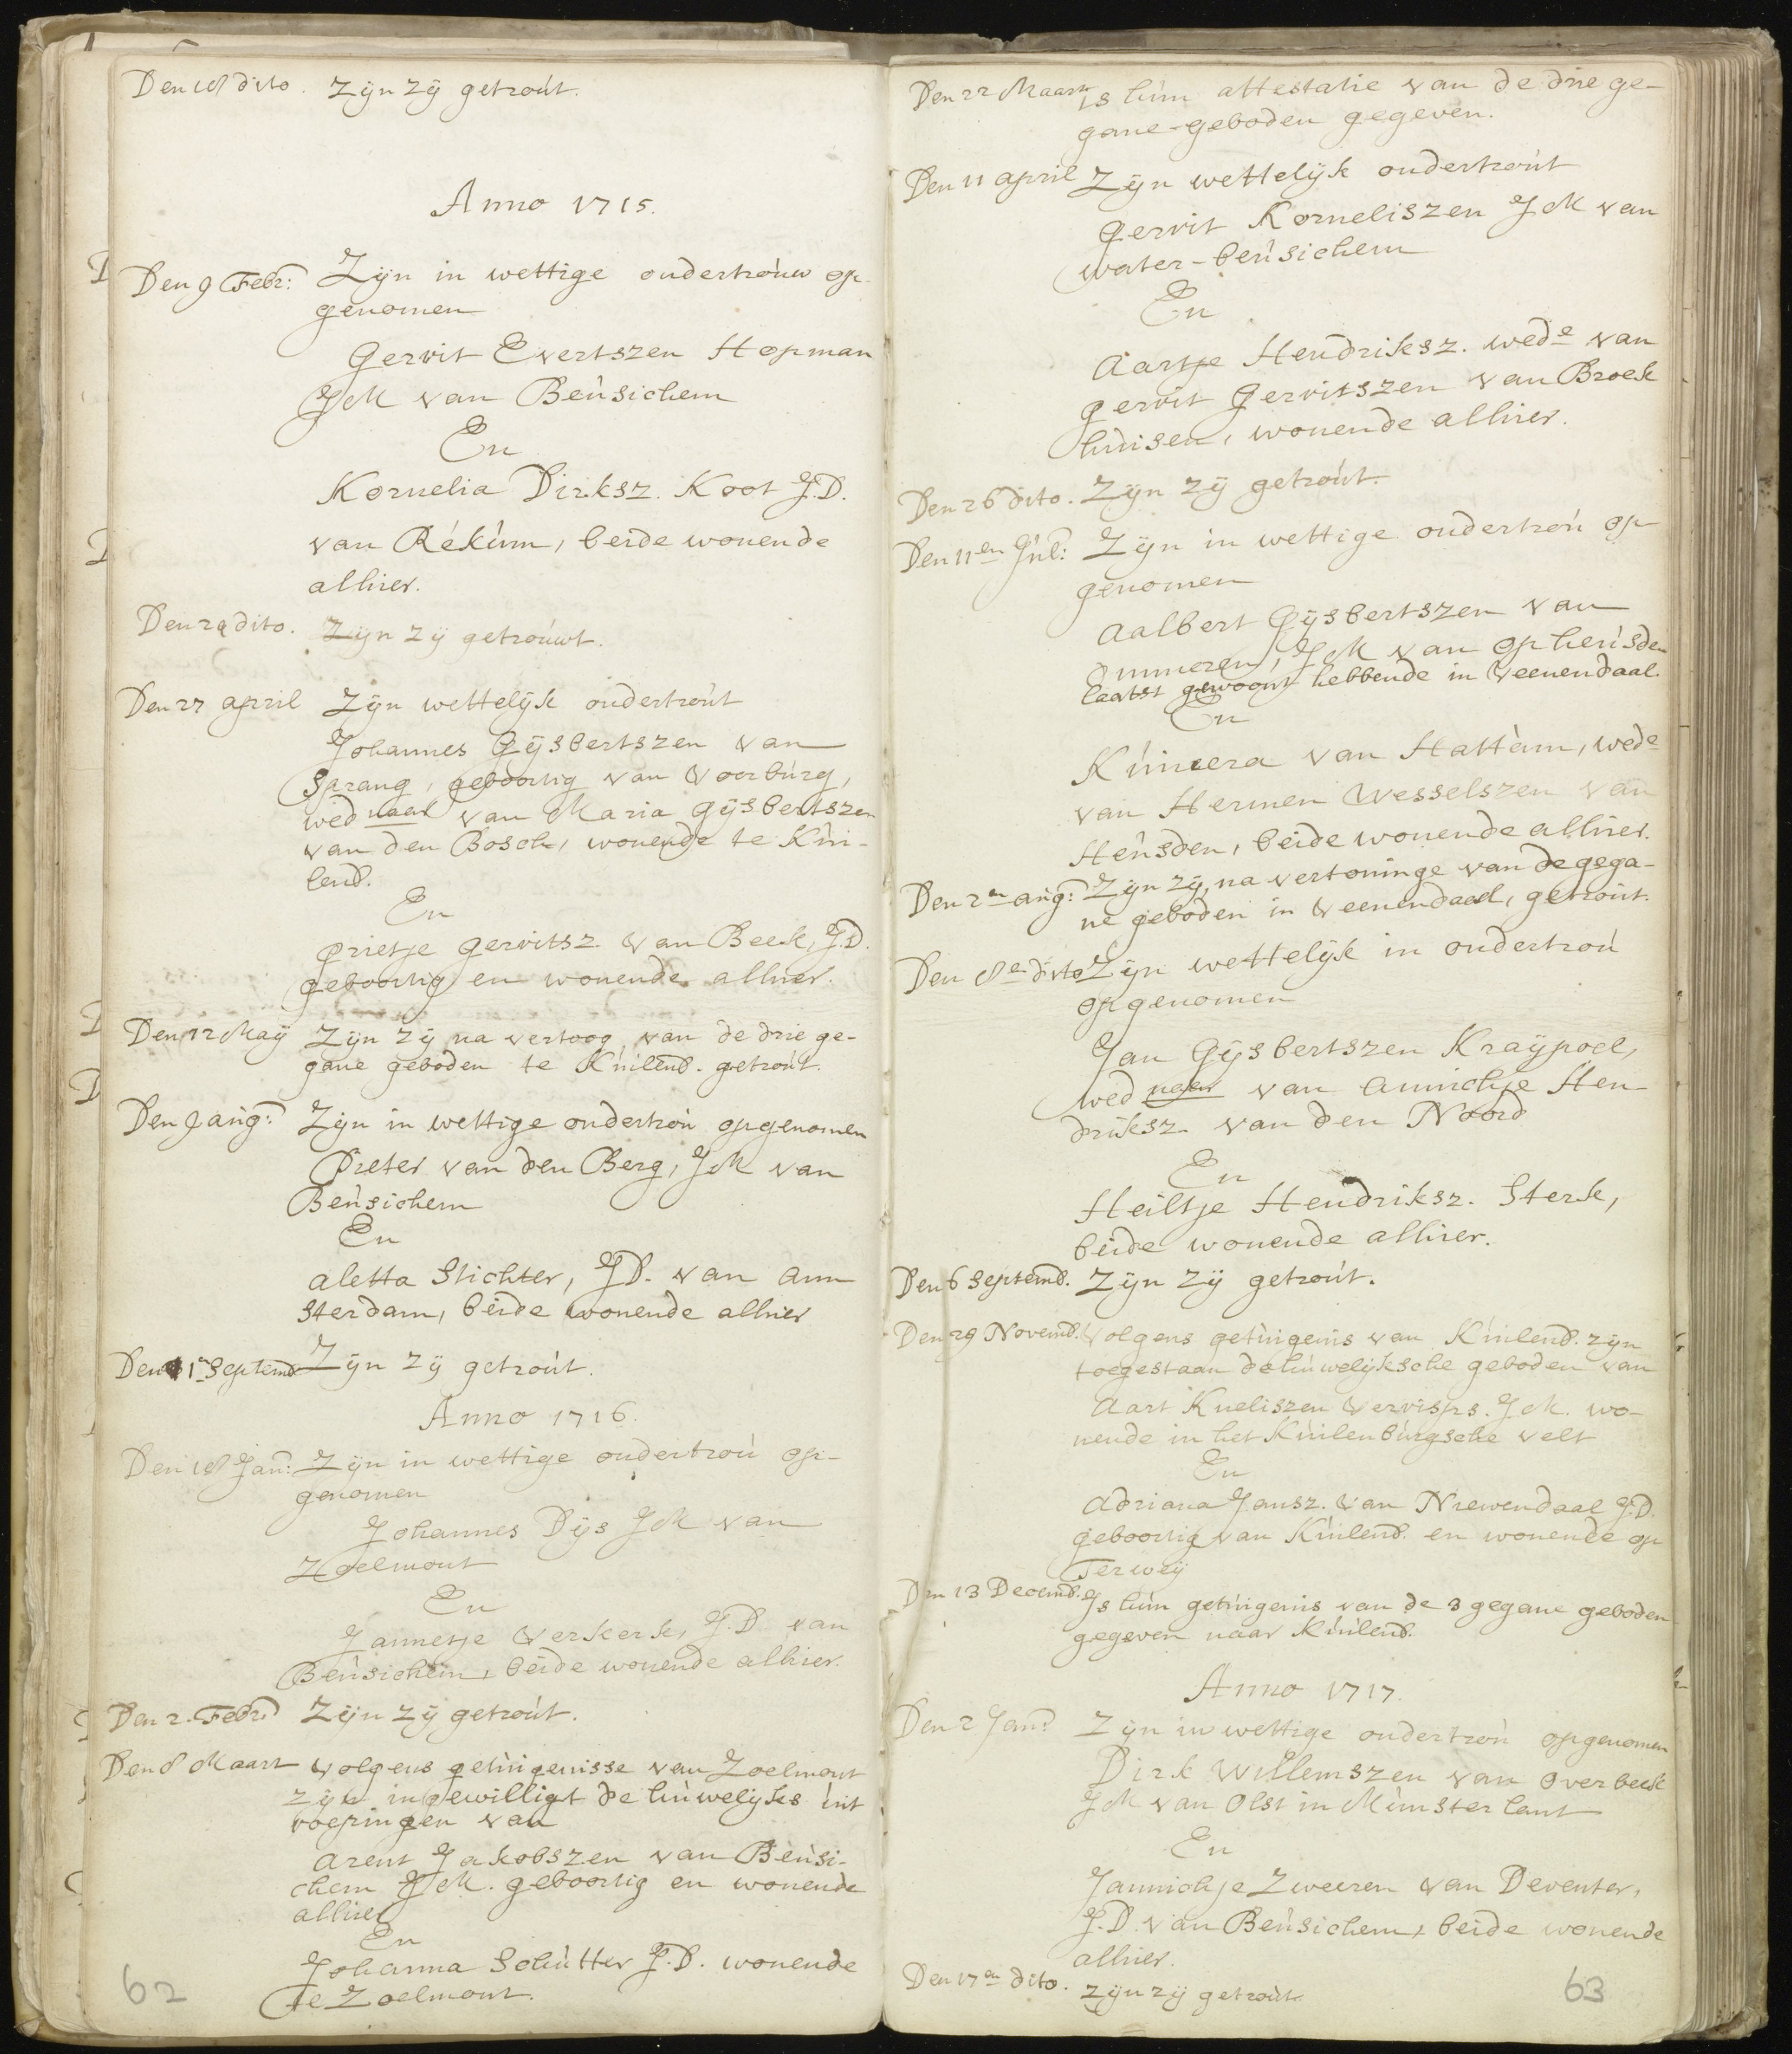 Den 18 dito. Zijn zij getroút.
Anno 1715.
Den 9 Febr: Zijn in wettige ondertroúw op-
genomen
Gerrit Evertszen Hopman
JM van Beúsichem
En
Kornelia Dirksz. Koot J.D.
van Rékúm, beide wonende
alhier.
Den 24 dito. Zijn zij getroúwt.
Den 27 april Zijn wettelijk ondertroút
Johannes Gijsbertszen van
Sprang, geboortig van Voorbúrg,
wednaar van Maria Gijsbertszen
van den Bosch, wonende te Kúi-
lenb.
En
Grietje Gerritsz. van Beek, J.D.
geboortig en wonende alhier.
Den 12 Maij Zijn zij na vertoog van de drie ge-
gane geboden te Kúilenb. getroút.
Den 9 aúg: Zijn in wettige ondertroú opgenomen
Pieter van den Berg, JM van
Beúsichem
En
aletta Stichter, JD. van Am
sterdam, beide wonende alhier
Den 1e Septemb Zijn zij getroút.
Anno 1716.
Den 18 Jan: Zijn in wettige ondertroú op-
genomen
Johannes Dijs JM van
Zoelmont
En
Jannetje Verkerk, J.D. van
Beúsichem, beide wonende alhier.
Den 2. Febr: Zijn zij getroút.
Den 8 Maart volgens getúigenisse van Zoelmont
zijn ingewilligt de húwelijks úit
roepingen van
Arent Jakobszen van Beúsi-
chem JM. geboortig en wonende
alhier
En
Johanna Schútter J.D. wonende
te Zoelmont.
62
Den 22 Maart is húm attestatie van de drie ge-
gane-geboden gegeven.
Den 11 april Zijn wettelijk ondertroút
Gerrit Korneliszen JM van
water-beúsichem
En
Aartje Hendriksz. wede van
Gerrit Gerritszen van Broek
húisen, wonende alhier.
Den 26 dito. Zijn zij getroút.
Den 11en Júl: Zijn in wettige ondertroú op-
genomen
Aalbert Gijsbertszen van
Ommeren, JM van opheúsden
laatst gewoont hebbende in Veenendaal.
En
Kúniera van Hattúm, wede
van Hermen Wesselszen van
Heúsden, beide wonende alhier.
Den 2en aúg: Zijn zij, na vertoninge van de gega-
ne geboden in Veenendaal, getroút.
Den 8e dito Zijn wettelijk in ondertroú
opgenomen
Jan Gijsbertszen Kraijpoel,
wednaar van Annichje Hen-
driksz. van den Noord
En
Heiltje Hendriksz. Sterk,
beide wonende alhier.
Den 6 Septemb. Zijn zij getroút.
Den 29 Novemb. Volgens getúigenis van Kúilenb. zijn
toegestaan de húwelijksche geboden van
Aart Kneliszen Verrisps. JM. wo-
nende in het Kúilenbúrgsche velt
En
Adriana Jansz. van Niewendaal J.D.
geboortig van Kúilenb. en wonende op
Terweij
Den 13 Decemb. Js hún getúigenis van de 3 gegane geboden
gegeven naar Kúilenb.
Anno 1717.
Den 2 Jan: Zijn in wettige ondertroú opgenomen
Dirk Willemszen van Overbeek
JM van Olst in Múnsterlant
En
Jannichje Zweeren van Deventer,
J.D. van Beúsichem, beide wonende
alhier.
Den 17en dito. Zijn zij getroút.
63